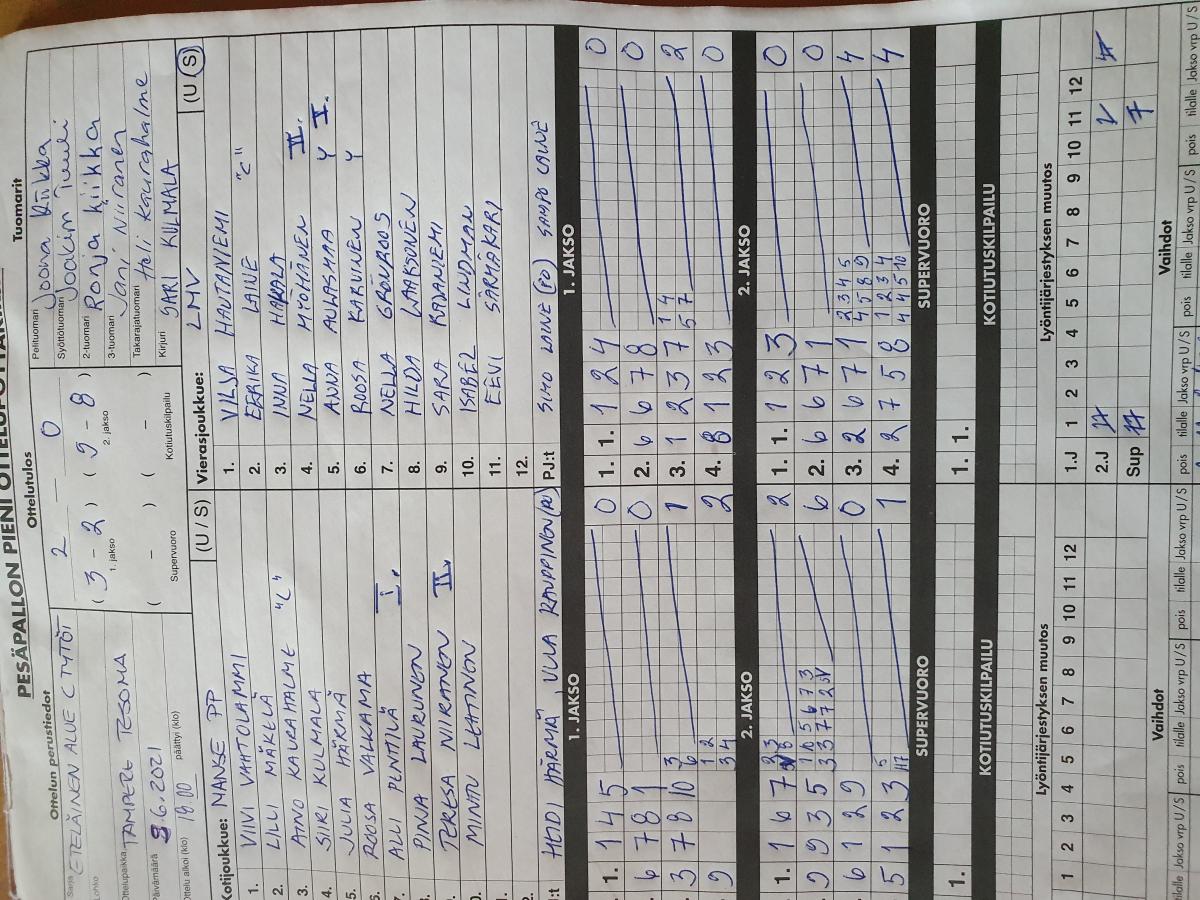 PESÄPALLON PIENI OTTELUPÖYTÄKIRJA
Ottelun perustiedot
Sarja ETELÄINEN ALUE C TYTÖT
Lohko
Ottelupaikka TAMPERE TESOMA
Päivämäärä 8.6.2021
Ottelu alkoi (klo) 19.00 päättyi (klo)
Ottelutulos
2 0
( 3 - 2 ) ( 9 - 8 )
1. jakso 2. jakso
( - ) ( - )
Supervuoro Kotiutuskilpailu
Tuomarit
Pelituomari Joona Kiikka
Syöttötuomari Joakim
2-tuomari Ronja Kiikka
3-tuomari Jani Niiranen
Takarajatuomari Heli Kaurahalme
Kirjuri JARI KULMALA
Kotijoukkue: MANSE PP (U / S)
1. VIIVI VAHTOLAMMI
2. LILLI MÄKELÄ
3. AINO KAURAHALME "C"
4. SIIRI KULMALA
5. JULIA HÄRMÄ
6. ROOSA VALKAMA
7. ALLI PENTTILÄ I.
PINJA LAURUNEN
TERESA NIIRANEN II.
MINTTU LEHTINEN
PJ:t HEIDI HÄRMÄ, ULLA KAUPPINEN (PO)
Vierasjoukkue: LMV (U / S)
1. VILJA HAUTANIEMI
2. EERIKA LAINE "C"
3. INNA HAKALA
4. NELLA MYÖHÄNEN II.
5. ANNA AULASMAA Y I.
6. ROOSA KARVINEN Y
7. NELLA GRÖNROOS
8. HILDA LAAKSONEN
9. SARA KAJANIEMI
10. ISABEL LINDMAN
11. EEVI SÄRMÄKARI
12.
PJ:t SIMO LAINE (PO) SAMPO LAINE
1. JAKSO
1. 1 4 5 0
6 7 8 1 0
3 7 8 10 3 6 1
9 1 2 3 4 2
2. JAKSO
1. 1 6 7 2
9 9 3 5 6
6 1 2 9 0
5 1 2 3 1
SUPERVUORO
1.
KOTIUTUSKILPAILU
Lyöntijärjestyksen muutos
1 2 3 4 5 6 7 8 9 10 11 12
Vaihdot
pois tilalle Jakso vrp U / S pois tilalle Jakso vrp U / S
1. JAKSO
1. 1. 1 2 4 0
2. 6 6 7 8 0
3. 1 2 3 7 1 4 5 7 2
4. 8 1 2 3 0
2. JAKSO
1. 1. 1 2 3 0
2. 6 6 7 1 0
3. 2 6 7 1 2 3 4 5 4 5 8 9 4
4. 2 7 5 8 1 2 3 4 4 4 5 10 4
SUPERVUORO
1. 1.
KOTIUTUSKILPAILU
Lyöntijärjestyksen muutos
1.J 1 2 3 4 5 6 7 8 9 10 11 12
2.J
Sup 7
Vaihdot
pois tilalle Jakso vrp U / S pois tilalle Jakso vrp U / S